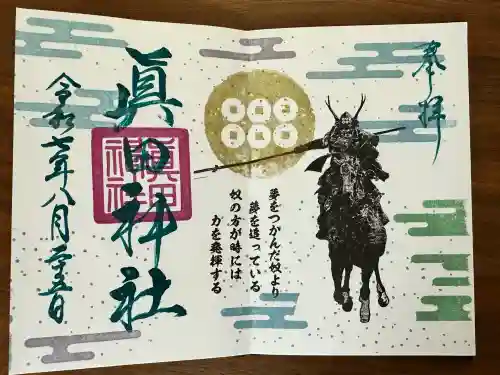 奉拝
夢をつかんだ奴より
夢を追っている
奴の方が時には
力を発揮する
眞田神社
令和七年八月二十五日